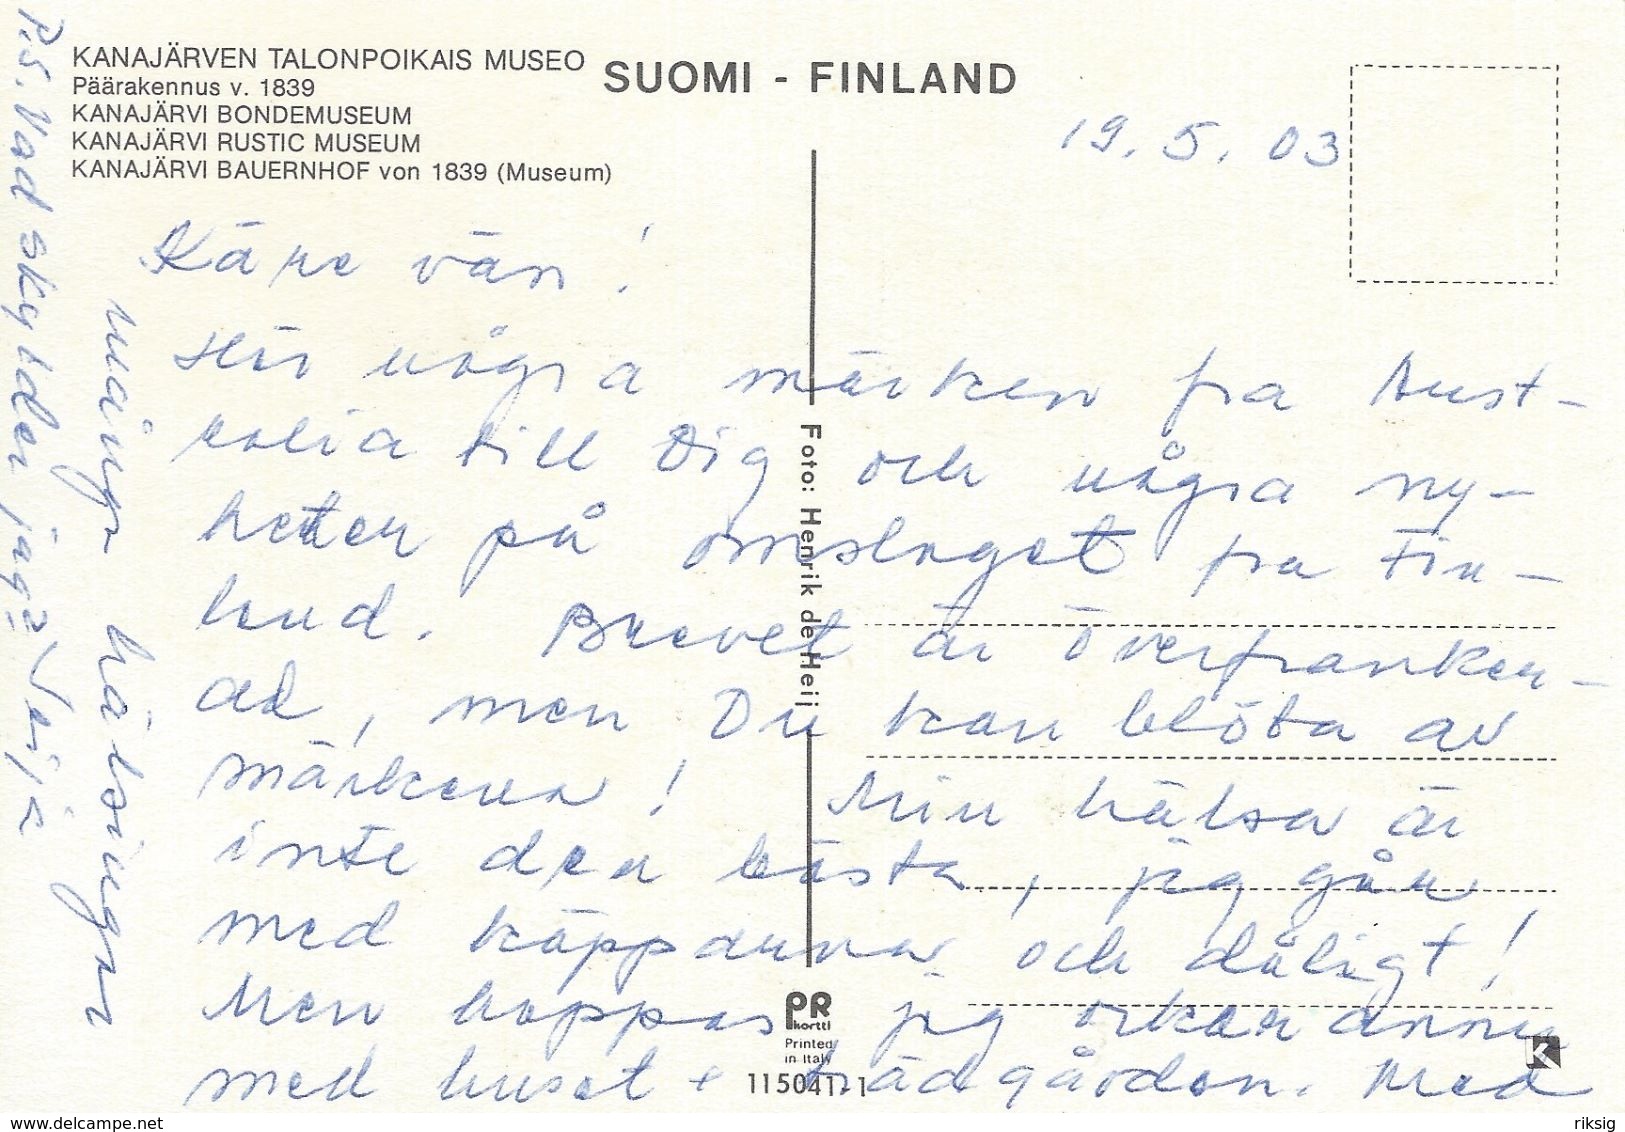 KANAJÄRVEN TALONPOIKAIS MUSEO
Päärakennus v. 1839
KANAJÄRVI BONDEMUSEUM
KANAJÄRVI RUSTIC MUSEUM
KANAJÄRVI BAUERNHOF von 1839 (Museum)
SUOMI - FINLAND
19.5.03
Käre vän!
Här några märken fra Aust-
ralia till Dig och några ny-
heter på omslaget fra Fin-
land. Brevet är överfranker-
ad, men Du kan blöta av
märkena! Min hälsa är
inte den bästa, jag går
med käpparna och dåligt!
Men hoppas jag orkar ännu
med huset + trädgården. Med
många hälsningar
Veijo
P.S. Vad skylder jag?
Foto: Henrik de Heij
PR
kortti
Printed
in Italy
1150411-1
K
www.delcampe.net
riksig